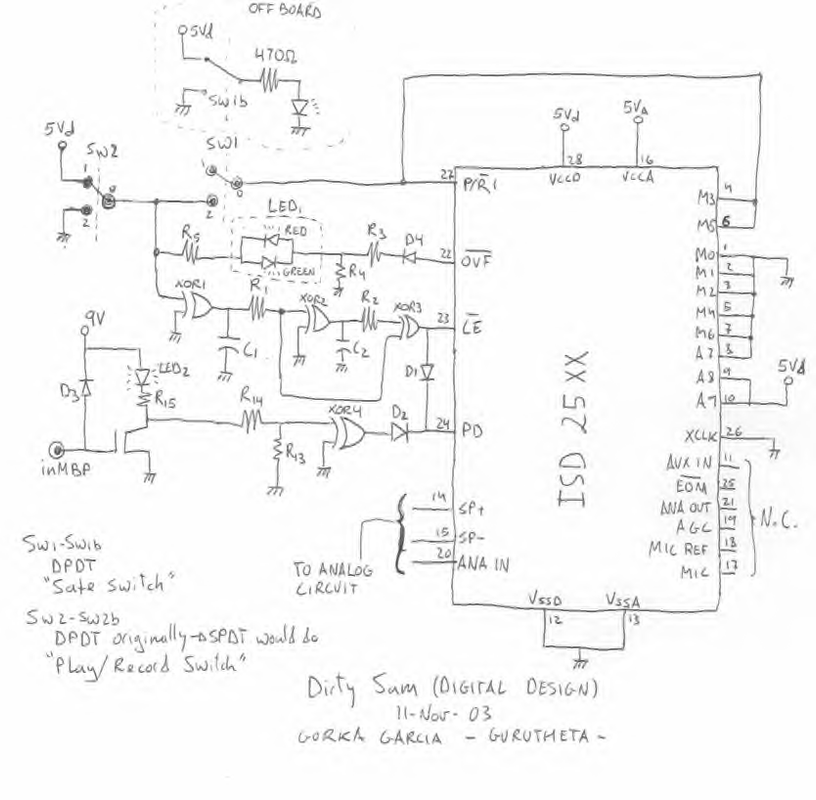 OFF BOARD
5Vd
470Ω
SW1b
5Vd
SW2
1
2
SW1
2
LED1
RED
GREEN
R5
R3
D4
R4
XOR1
R1
XOR2
R2
XOR3
C1
C2
D1
9V
LED2
D3
R15
R14
XOR4
D2
R13
inMBP
5Vd
5VA
28
16
VCCD
VCCA
27 P/R̅1
22 O̅V̅F̅
23 L̅E̅
24 PD
14 SP+
15 SP-
20 ANA IN
TO ANALOG
CIRCUIT
ISD 25XX
M3 4
M5 6
M0 1
M1 2
M2 3
M4 5
M6 7
A7 8
A8 9
A9 10
5Vd
XCLK 26
AUX IN 11
E̅O̅M̅ 25
ANA OUT 21
AGC 19
MIC REF 18
MIC 17
N.C.
VSSD
VSSA
12
13
SW1-SW1b
DPDT
"Safe Switch"
SW2-SW2b
DPDT originally→SPDT would do
"Play/Record Switch"
Dirty Sam (DIGITAL DESIGN)
11-Nov-03
GORKA GARCIA - GURUTHETA -